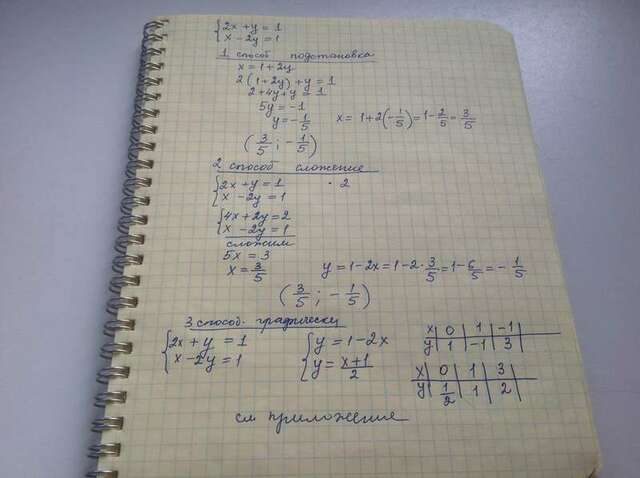 {2x + y = 1
{x - 2y = 1
1 способ подстановка
x = 1 + 2y
2(1 + 2y) + y = 1
2 + 4y + y = 1
5y = -1
y = -1/5 x = 1 + 2(-1/5) = 1 - 2/5 = 3/5
(3/5 ; -1/5)
2 способ сложение
{2x + y = 1 · 2
{x - 2y = 1
{4x + 2y = 2
{x - 2y = 1
сложим
5x = 3
x = 3/5 y = 1 - 2x = 1 - 2 · 3/5 = 1 - 6/5 = -1/5
(3/5 ; -1/5)
3 способ. графически
{2x + y = 1 {y = 1 - 2x x | 0 | 1 | -1
{x - 2y = 1 {y = x+1/2 y | 1 | -1 | 3
x | 0 | 1 | 3
y | 1/2 | 1 | 2
см приложение